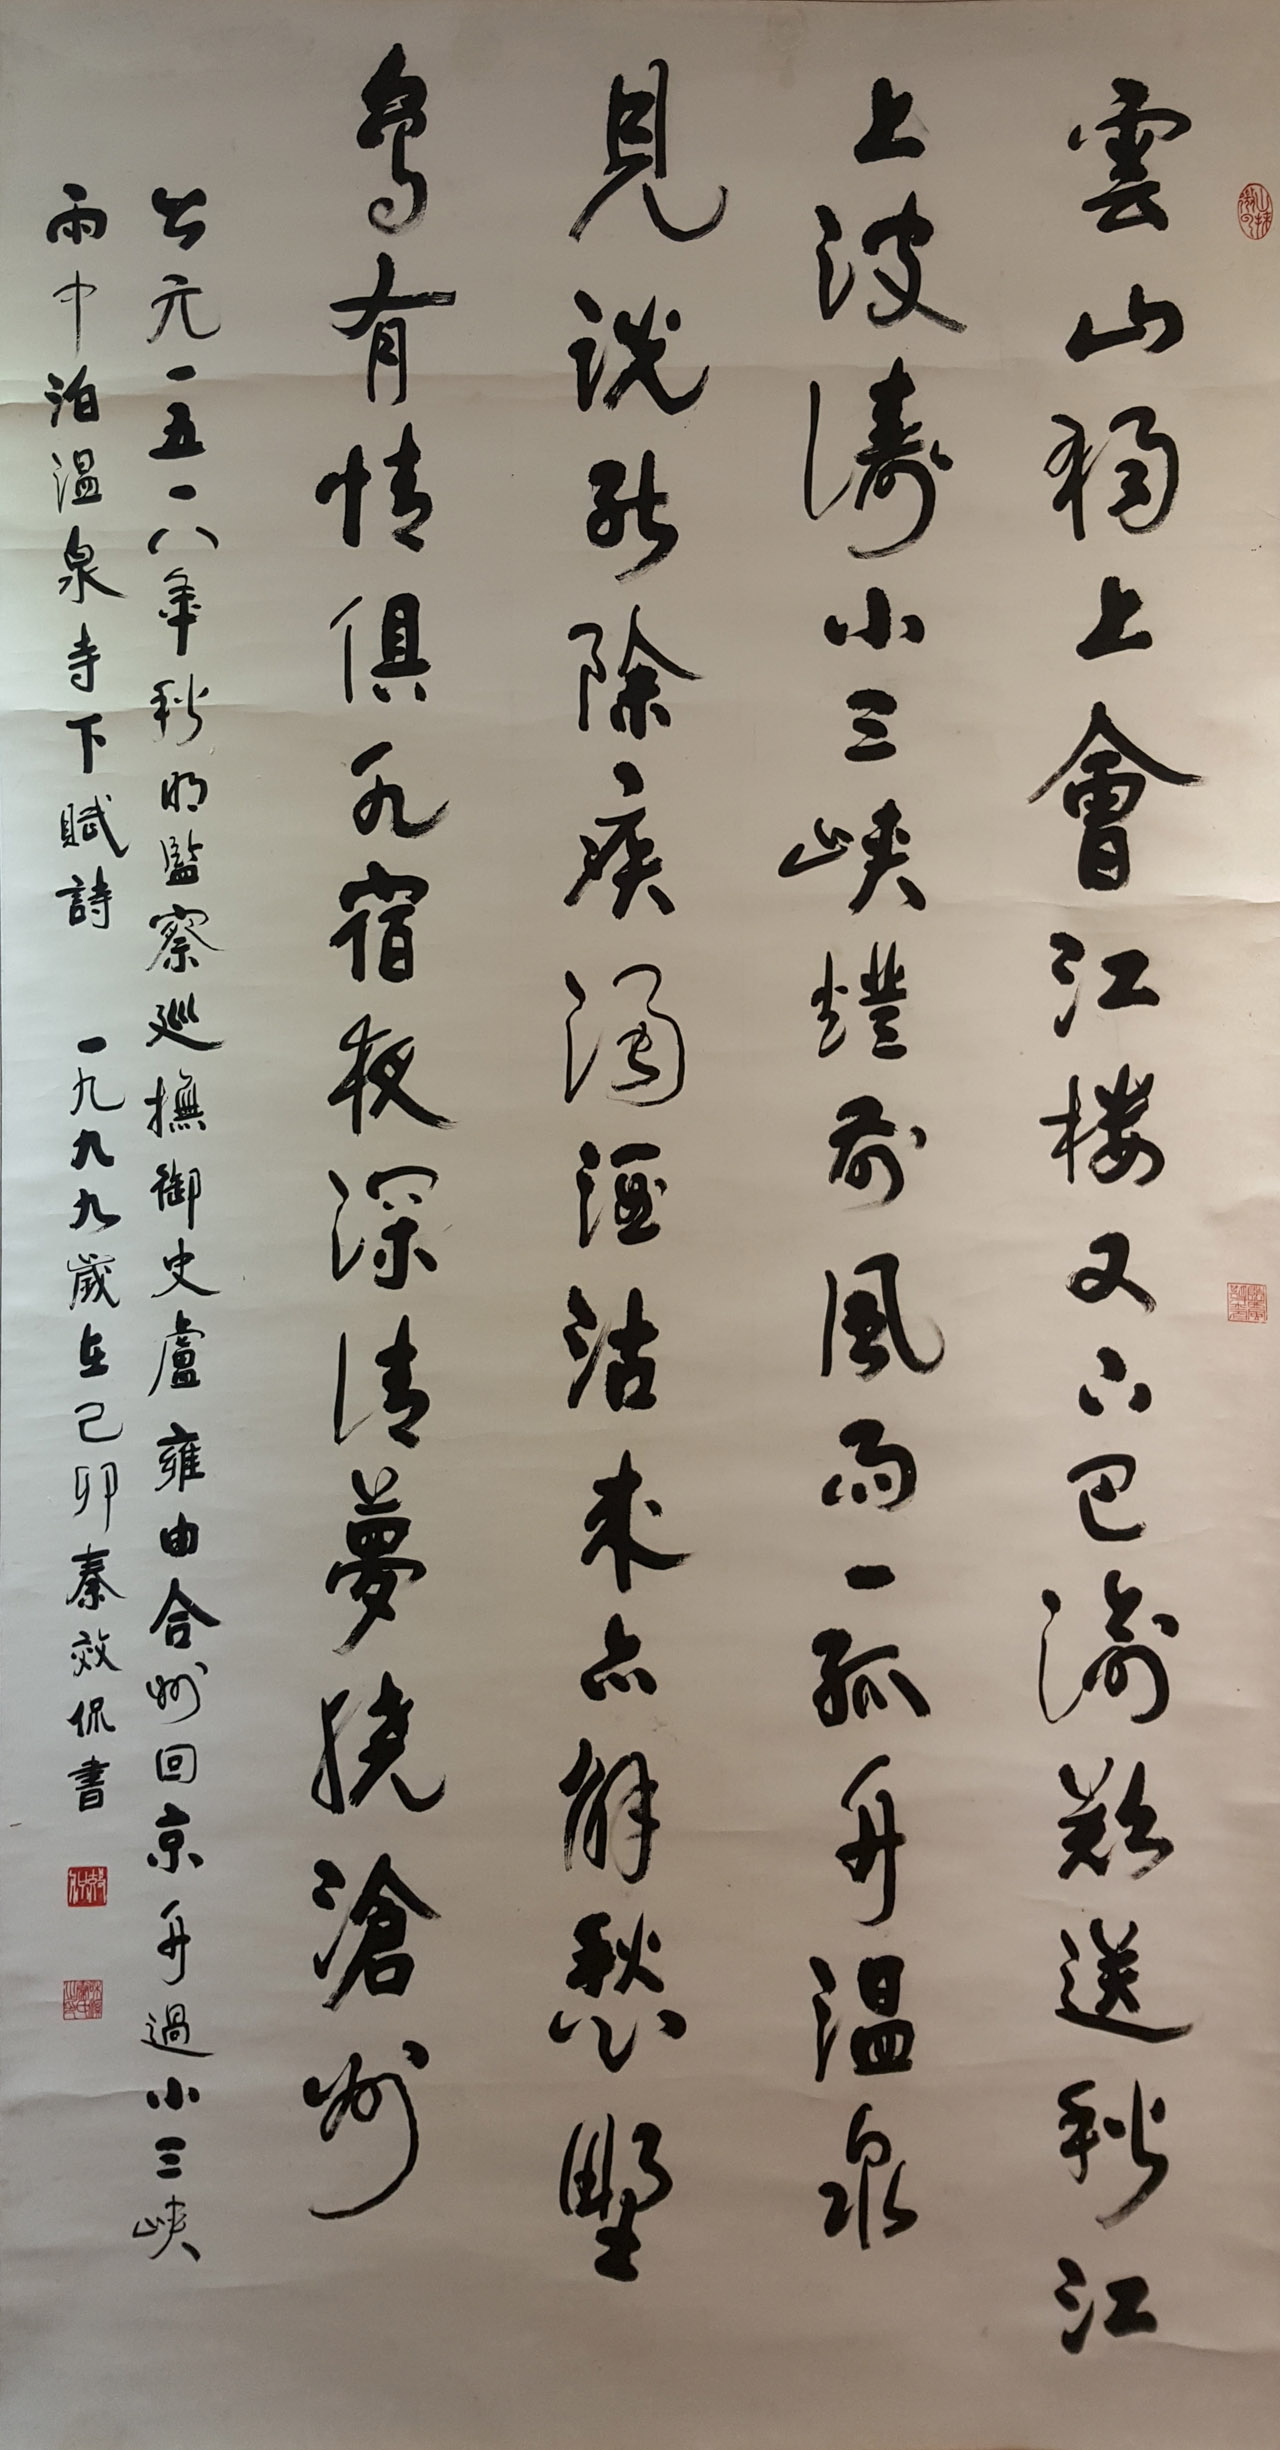 雲山獨上會江楼又下巴渝欵送秋江
上波濤小三峽燈前風雨一孤舟温泉
見説能除疾濁酒沽來亦解愁墅
鳥有情俱永宿夜深清夢繞滄州
公元一五一八年秋明監察巡撫御史盧雍由合州回京舟過小三峽
雨中泊温泉寺下賦詩 一九九九歲在己卯秦效侃書